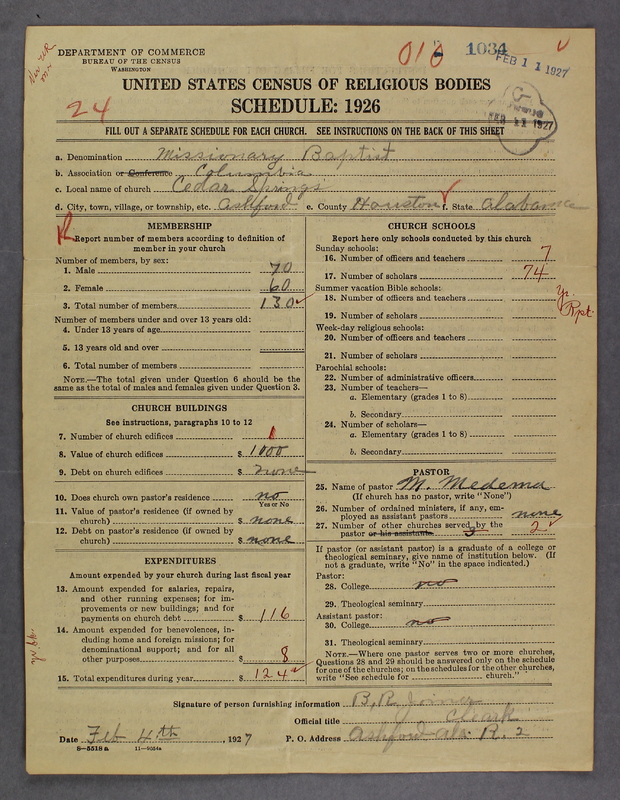 DEPARTMENT OF COMMERCE
BUREAU OF THE CENSUS
WASHINGTON
010 1034
FEB 11 1927
UNITED STATES CENSUS OF RELIGIOUS BODIES
SCHEDULE: 1926
24
FEB 11 1927
FILL OUT A SEPARATE SCHEDULE FOR EACH CHURCH. SEE INSTRUCTIONS ON THE BACK OF THIS SHEET
a. Denomination Missionary Baptist
b. Association or Conference Columbia
c. Local name of church Cedar Springs
d. City, town, village, or township, etc. Ashford e. County Houston f. State Alabama
MEMBERSHIP
Report number of members according to definition of
member in your church
Number of members, by sex:
1. Male 70
2. Female 60
3. Total number of members 130
Number of members under and over 13 years old:
4. Under 13 years of age
5. 13 years old and over
6. Total number of members
NOTE.—The total given under Question 6 should be the
same as the total of males and females given under Question 3.
CHURCH BUILDINGS
See instructions, paragraphs 10 to 12
7. Number of church edifices 1
8. Value of church edifices $ 1000
9. Debt on church edifices $ none
10. Does church own pastor's residence no
Yes or No
11. Value of pastor's residence (if owned by
church) $ none
12. Debt on pastor's residence (if owned by
church) $ none
EXPENDITURES
Amount expended by your church during last fiscal year
13. Amount expended for salaries, repairs,
and other running expenses; for im-
provements or new buildings; and for
payments on church debt $ 116
14. Amount expended for benevolences, in-
cluding home and foreign missions; for
denominational support; and for all
other purposes $ 8
15. Total expenditures during year $ 124
CHURCH SCHOOLS
Report here only schools conducted by this church
Sunday schools:
16. Number of officers and teachers 7
17. Number of scholars 74
Yr. Rpt.
Summer vacation Bible schools:
18. Number of officers and teachers
19. Number of scholars
Week-day religious schools:
20. Number of officers and teachers
21. Number of scholars
Parochial schools:
22. Number of administrative officers
23. Number of teachers—
a. Elementary (grades 1 to 8)
b. Secondary
24. Number of scholars—
a. Elementary (grades 1 to 8)
b. Secondary
PASTOR
25. Name of pastor M. Medema
(If church has no pastor, write "None")
26. Number of ordained ministers, if any, em-
ployed as assistant pastors none
27. Number of other churches served by the
pastor or his assistants 3 2
If pastor (or assistant pastor) is a graduate of a college or
theological seminary, give name of institution below. (If
not a graduate, write "No" in the space indicated.)
Pastor:
28. College no
29. Theological seminary
Assistant pastor:
30. College no
31. Theological seminary
NOTE.—Where one pastor serves two or more churches,
Questions 28 and 29 should be answered only on the schedule
for one of the churches; on the schedules for the other churches,
write "See schedule for church."
Signature of person furnishing information B, R, Joiner
Official title Clerk
Date Feb 4th, 1927 P. O. Address Ashford Ala. R. 2
8—5518a 11—9054a